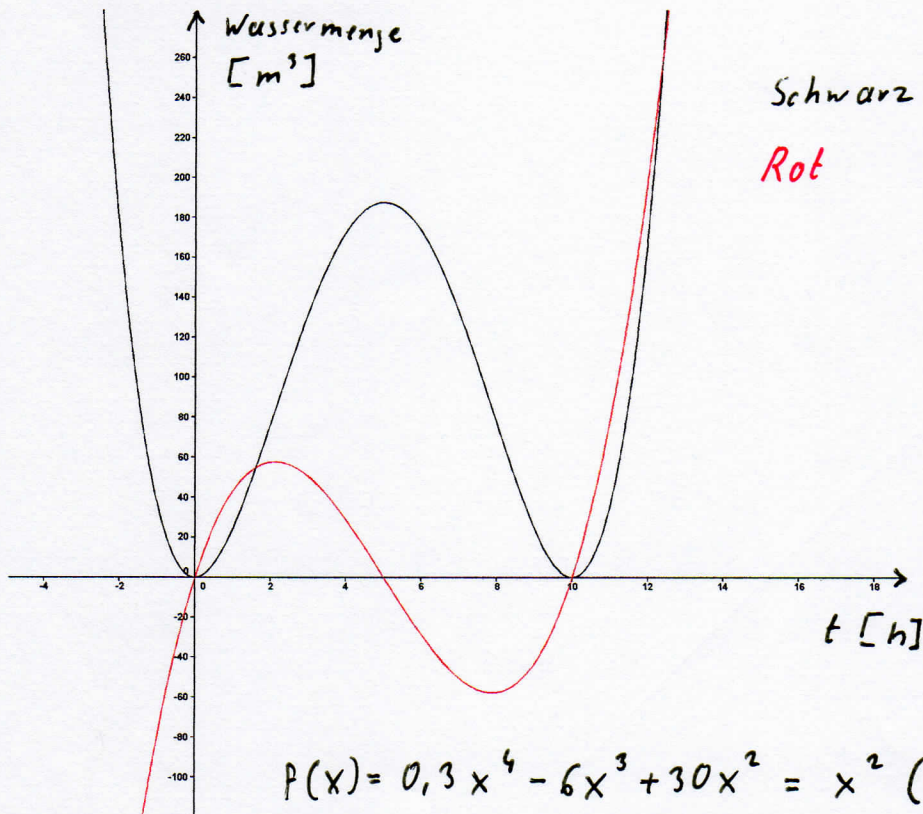 Wassermenge
[m³]
Schwarz
Rot
260
240
220
200
180
160
140
120
100
80
60
40
20
0
-4 -2 0 2 4 6 8 10 12 14 16 18
-20
-40
-60
-80
-100
t [h]
f(x) = 0,3x⁴ - 6x³ + 30x² = x² (